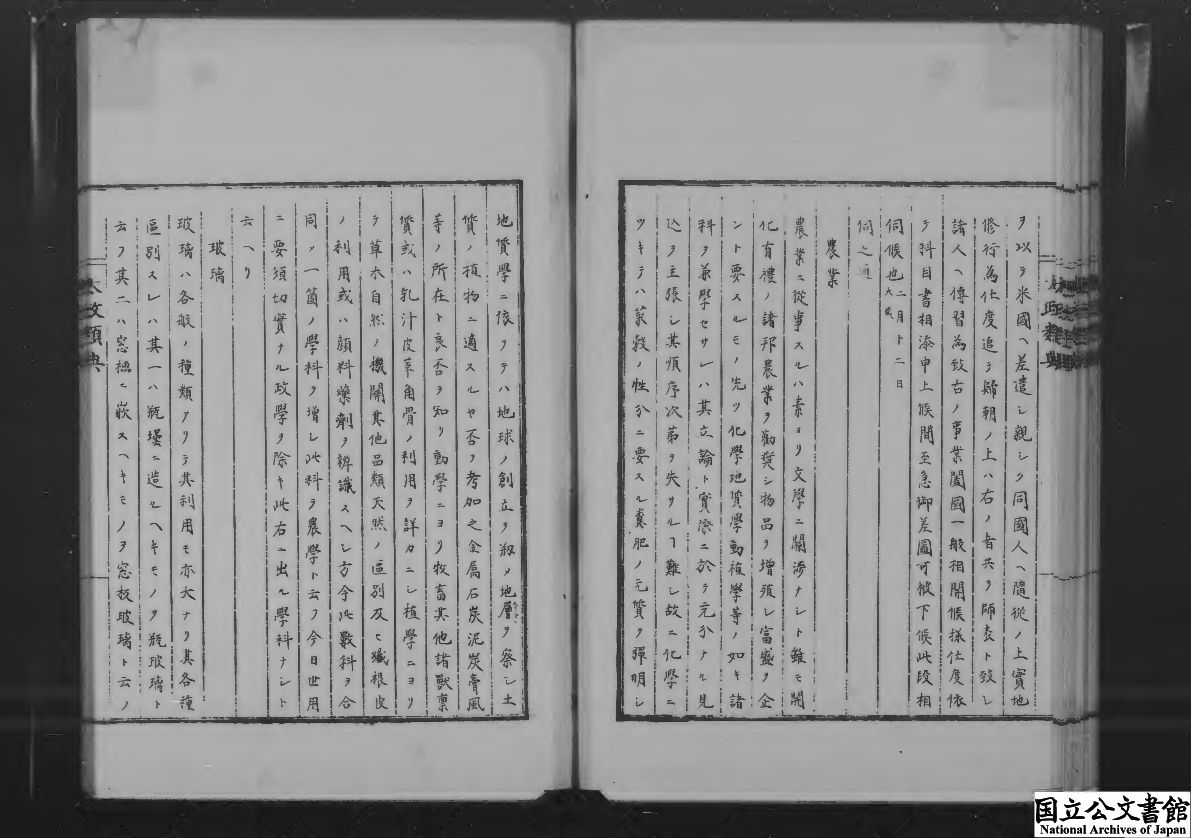 ヲ以テ米國ヘ差遣シ親シク同國人ヘ隨從ノ上實地
修行為仕度追テ歸朝ノ上ハ右ノ者共ヲ師表ト致シ
諸人ヘ傳習為致右ノ事業闔國一般相開候様仕度依
テ科目書相添申上候間至急御差圖可被下候此段相
伺候也 二月十二日 大蔵
伺之通
農業
農業ニ從事スルハ素ヨリ文學ニ關渉ナシト雖モ開
化有禮ノ諸邦農業ヲ勸奨シ物品ヲ増殖シ富盛ヲ企
ント要スルモノ先ツ化學地質學動植學等ノ如キ諸
科ヲ兼學セサレハ其立論ト實際ニ於テ充分ナル見
込ヲ主張シ其順序次第ヲ失サルヿ難シ故ニ化學ニ
ツキテハ菓穀ノ性分ニ要スル糞肥ノ元質ヲ彈明シ
地質學ニ依リテハ地球ノ創立ヲ溆メ地層ヲ察シ土
質ノ植物ニ適スルヤ否ヲ考加之金属石炭泥炭膏風
等ノ所在ト良否ヲ知リ動學ニヨリ牧畜其他諸獸稟
質或ハ乳汁皮革角骨ノ利用ヲ詳カニシ植學ニヨリ
テ草木自然ノ機關其他品類天然ノ區別及ヒ纖根皮
ノ利用或ハ顔料藥劑ヲ辨識スヘシ方今此數科ヲ合
同シ一箇ノ學科ヲ増シ此科ヲ農學ト云フ今日世用
ニ要須切實ナル政學ヲ除キ此右ニ出ル學科ナシト
云ヘリ
玻璃
玻璃ハ各般ノ種類アリテ其利用モ亦大ナリ其各種
區別スレハ其一ハ瓶壜ニ造ルヘキモノヲ瓶玻璃ト
云フ其二ハ窓櫺ニ嵌スヘキモノヲ窓板玻璃ト云ノ
太政類典
国立公文書館
National Archives of Japan